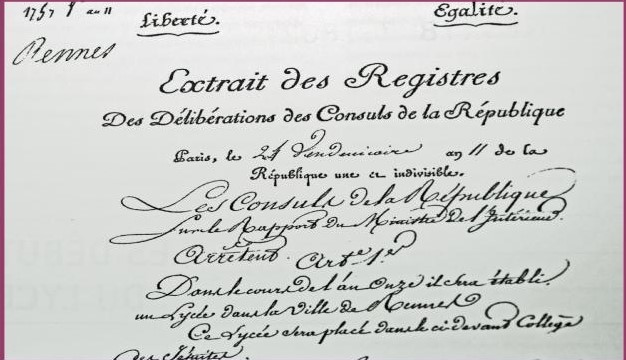 an 11
Liberté. Egalité.
Rennes
Extrait des Registres
Des Délibérations des Consuls de la République
Paris, le 24 Vendemiaire an 11 de la
République une et indivisible.
Les Consuls de la République
Sur le Rapport du Ministre de l'Intérieur.
Arrêtent. Art.e 1.er
Dans le cours de l'an Onze il sera établi
un Lycée dans la Ville de Rennes
Ce Lycée sera placé dans le ci devant Collège
des Jésuites